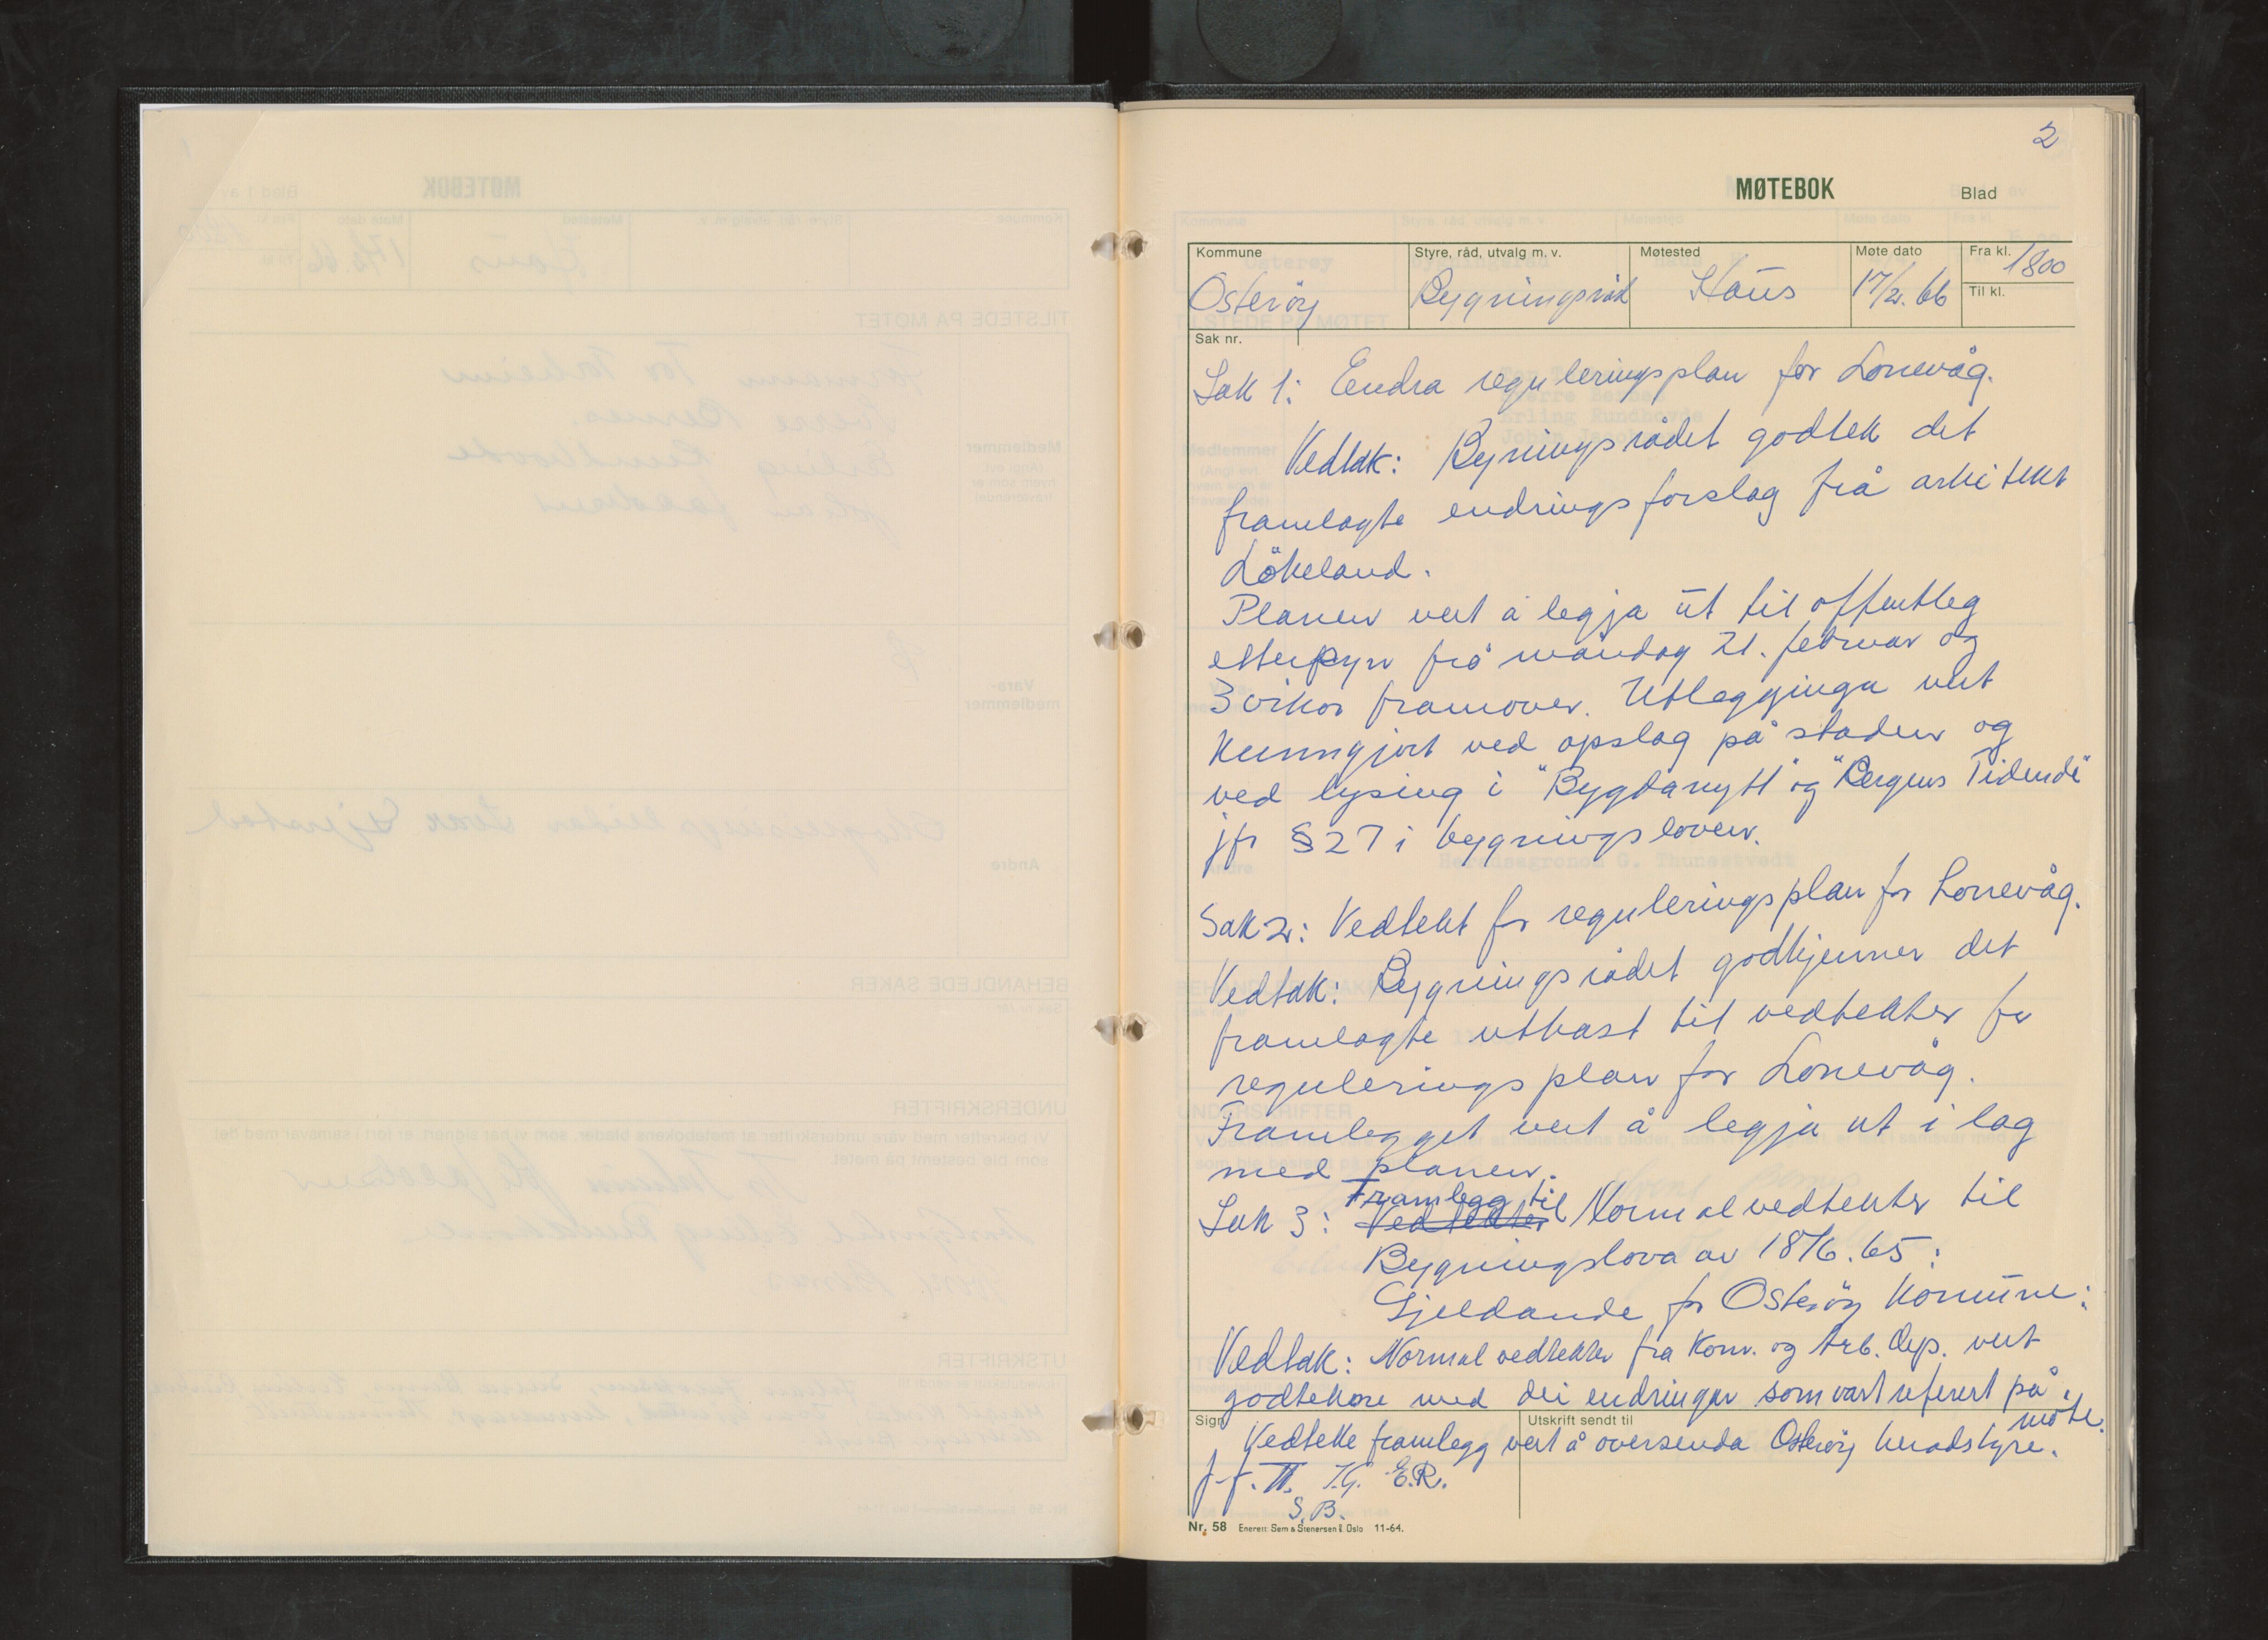 2
MØTEBOK
Blad
Kommune
Styre, råd, utvalg m. v.
Møtested
Møte dato
Fra kl.
1800
Osteröy
Bygningsråd
Haus
17/2. 66
Til kl.
Sak nr.
Sak 1: Endra reguleringsplan for Lonevåg.
Vedtak: Bygningsrådet godtek det
framlagte endringsforslag frå arkitekt
Lökeland.
Planen vert å legja ut til offentleg
ettersyn frå måndag 21. februar og
3 vikor framover. Utlegginga vert
kunngjort ved opslag på staden og
ved lysing i "Bygdanytt" og "Bergens Tidende"
jfr § 27 i bygningsloven.
Sak 2: Vedtekt for reguleringsplan for Lonevåg.
Vedtak: Bygningsrådet godkjenner det
framlagte utkast til vedtekter for
reguleringsplan for Lonevåg.
Framlegget vert å legja ut i lag
med planen.
Framlegg til
Sak 3: Vedtekter Normalvedtekter til
Bygningslova av 18/6. 65:
Gjeldande for Osteröy Kommune:
Vedtak: Normalvedtekter fra Kom. og Arb. Dep. vert
godtekne med dei endringar som vart referert på
møte.
Sign.
Utskrift sendt til
Vedtekte framlegg vert å oversenda Osteröy heradstyre.
J.J. TT. I.G. E.R.
S.B.
Nr. 58 Enerett: Sem & Stenersen A/S Oslo 11-64.